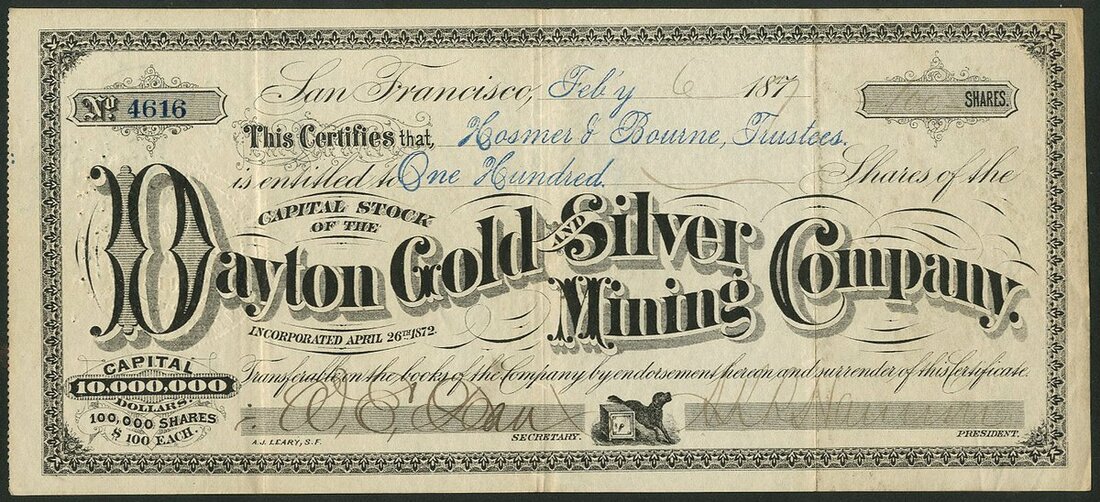 San Francisco, Feb'y 6 1877
No. 4616
SHARES.
This Certifies that, Hosmer & Bourne, Trustees.
is entitled to One Hundred Shares of the
CAPITAL STOCK
OF THE
Dayton Gold AND Silver Mining Company.
INCORPORATED APRIL 26TH 1872.
CAPITAL
10.000.000
DOLLARS
100,000 SHARES
$100 EACH.
Transferable on the books of the Company by endorsement hereon and surrender of this Certificate.
A.J. LEARY, S.F.
SECRETARY.
PRESIDENT.